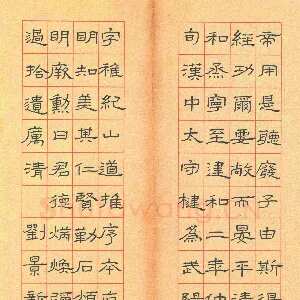 帝用是聽廢子由斯得
經功爾要敞而晏平清
和烝寧至建和二年仲
旬漢中太守楗為武陽
字稚紀山道推序本原
明知美其仁賢勒石頌
明厥勳曰君德炳煥彌
過拾遺厲清劉景新